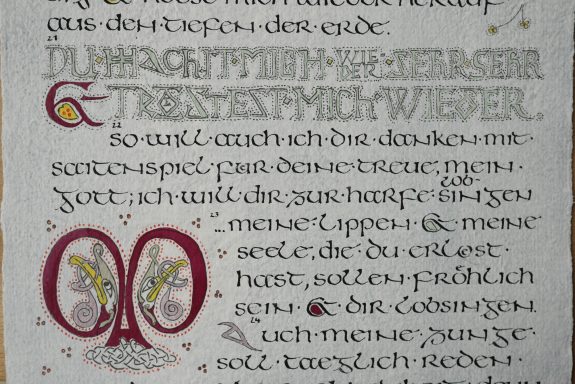 mich wieder herauf
aus · den · tiefen · der · erde ·
21
DU · MACHST · MICH · WIEDER · SEHR · SEHR
& TRÖSTEST · MICH · WIEDER ·
22
so · will · auch · ich · dir · danken · mit ·
saitenspiel · für · deine · treue, mein ·
gott; ich · will · dir · zur · harfe · lobsingen
23
... meine · lippen · & meine
seele, die · du · erlöst ·
hast, sollen · fröhlich
sein · & dir · lobsingen.
24
Auch · meine · zunge ·
soll · taeglich · reden ·